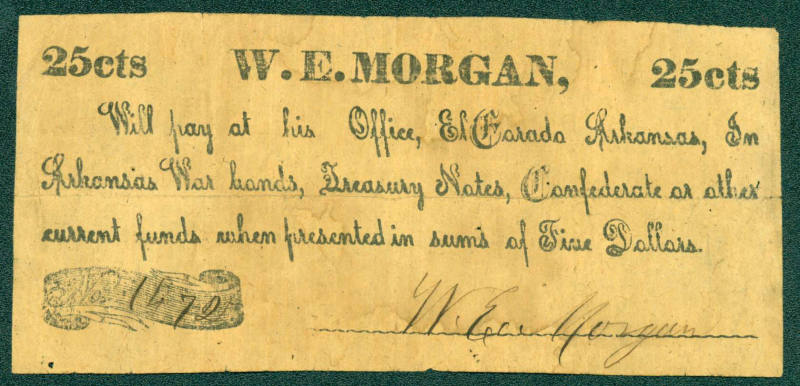 25cts W. E. MORGAN, 25cts
Will pay at his Office, El Corado Arkansas, In
Arkansas War bonds, Treasury Notes, Confederate or other
current funds when presented in sums of Five Dollars.
No. 1672
W. E. Morgan